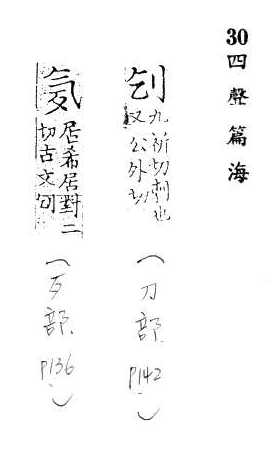 30四聲篇海
刉
九祈切刺也
又公外切
(刀部 P142)
居希居對二
切古文刉
(歹部 P136)